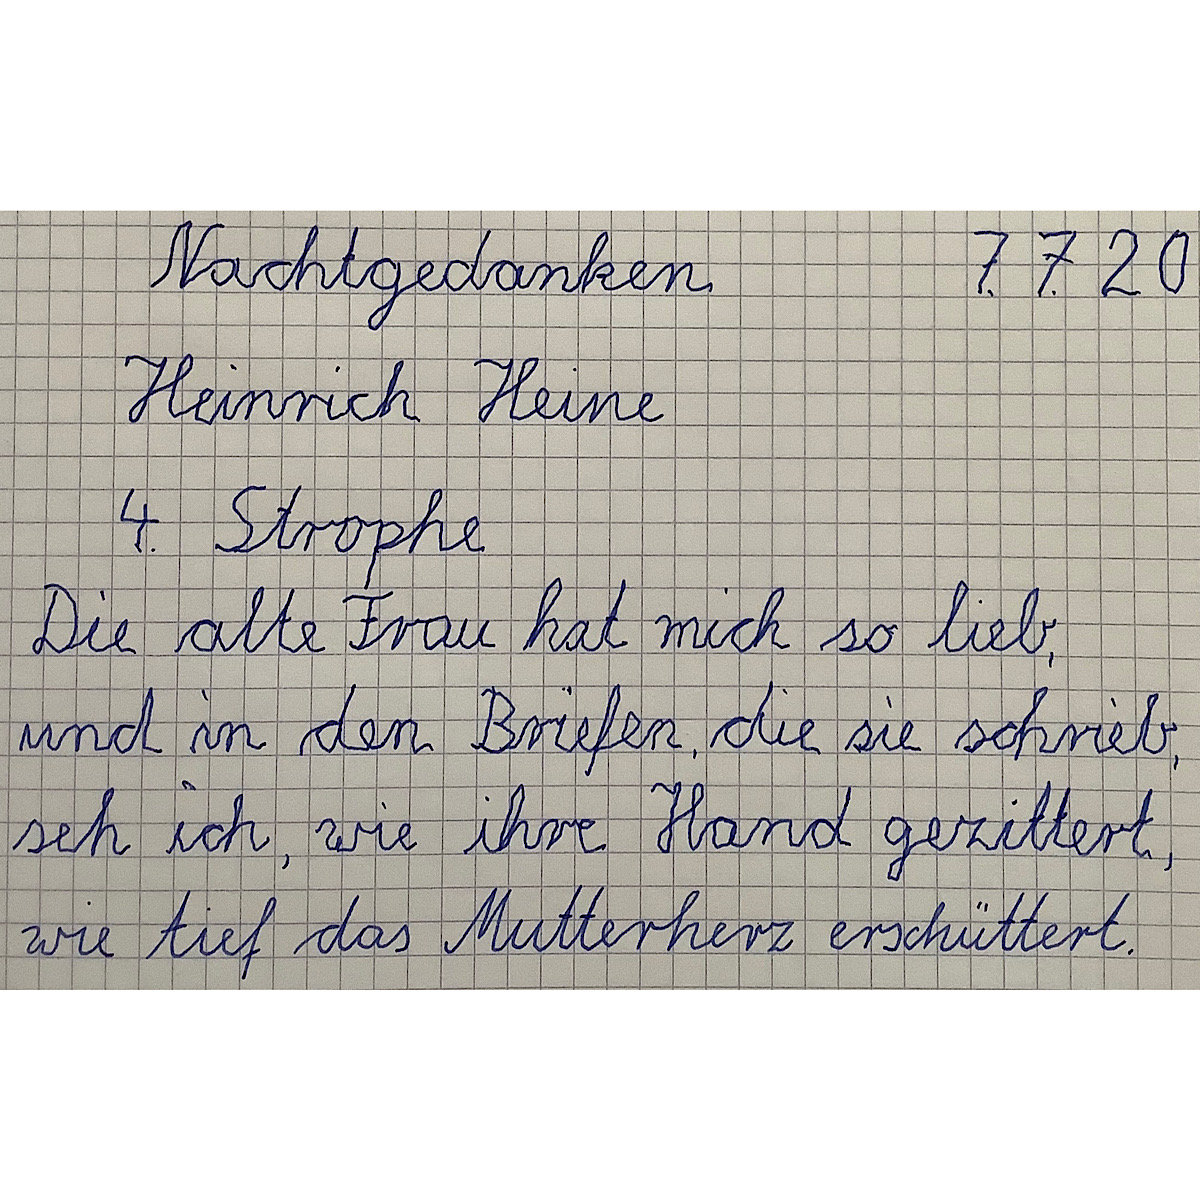 Nachtgedanken 7.7.20
Heinrich Heine
4. Strophe
Die alte Frau hat mich so lieb,
und in den Briefen, die sie schrieb,
seh ich, wie ihre Hand gezittert,
wie tief das Mutterherz erschüttert.